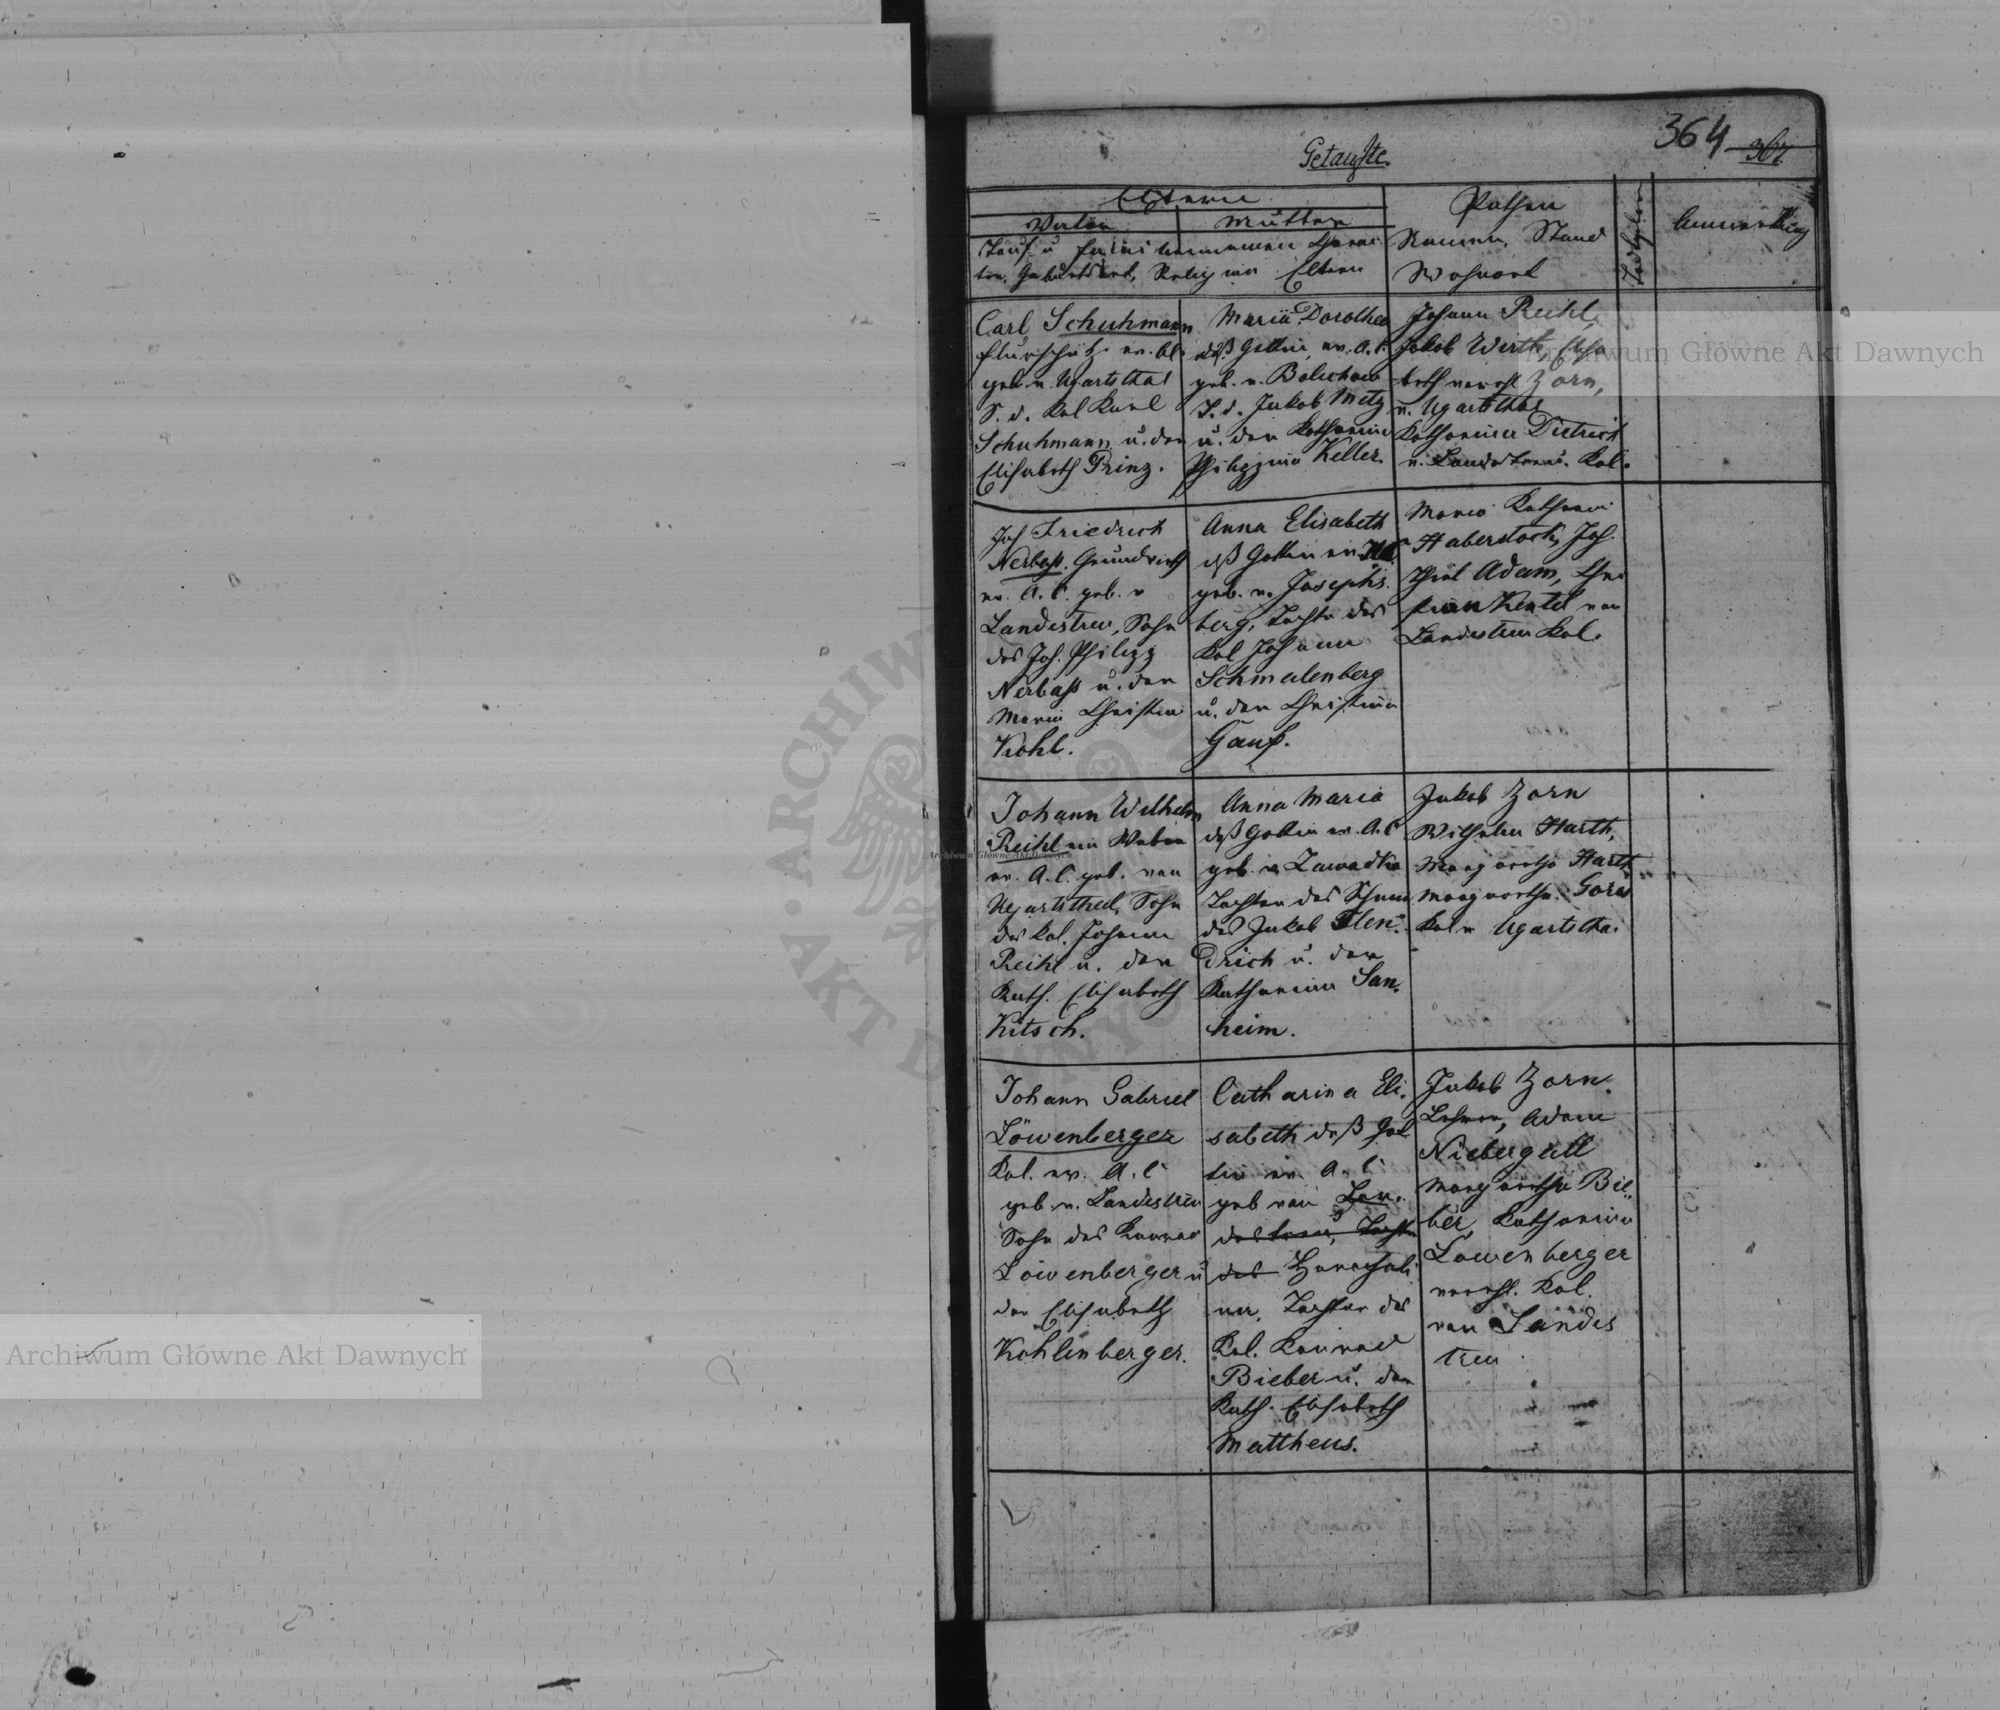 364 367
Getaufte.
Eltern
Vater
Mutter
Tauf- u
Religion Eltern
Pathen
Namen, Stand
Wohnort
Anmerkung
Carl Schuhmann
Flurschütz ev. A.
geb. v. Ugartsthal
S. d. Kol Karl
Schuhmann u. der
Elisabeth Prinz.
Maria Dorothea
deß Gattin, ev. A. C.
geb. v. Bolechow
T. d. Jakob Metz
u. der Katharina
Philippina Keller.
Johann Reihl,
Jakob Wirth, Elisa
beth verehl Zorn,
v. Ugartsthal
Katharina Dietrich
v. Landestreu. Kol.
Joh Friedrich
Nerbaß. Grundwirth
ev. A. C. geb. v
Landestreu, Sohn
des Joh. Philipp
Nerbaß u. der
Maria Christina
Kohl.
Anna Elisabeth
deß Gattin ev.
geb. v. Josephs
berg, Tochter des
Kol Johann
Schmalenberg
u. der Christina
Gauß.
Maria Katharina
Haberstock, Joh.
Adam, Chri
stian Kentel von
Landestreu Kol.
Johann Wilhelm
Reihl ein Weber
ev. A. C. geb. von
Ugartsthal, Sohn
des Kol. Johann
Reihl u. der
Kath. Elisabeth
Kitsch.
Anna Maria
deß Gattin ev. A. C
geb. v. Zawadka
Tochter des
des Jakob Flen-
drich u. der
Katharina San-
heim.
Jakob Zorn
Wilhelm Harth,
Margaretha Harth
Margaretha
Kol v Ugartsthal
Johann Gabriel
Löwenberger
Kol. ev. A. C
geb. v. Landestreu
Sohn des Konrad
Löwenberger u
der Elisabeth
Kohlenberger.
Catharina Eli-
sabeth deß Gat
tin ev. A. C
geb von Lan-
destreu, Tochter
des
Tochter des
Kol. Konrad
Bieber u. der
Kath. Elisabeth
Mattheus.
Jakob Zorn.
Lehrer, Adam
Niebergall
Margaretha Bie-
ber, Katharina
Löwenberger
verehl. Kol.
von Landes
treu
Archiwum Główne Akt Dawnych
Archiwum Główne Akt Dawnych
Archiwum Główne Akt Dawnych